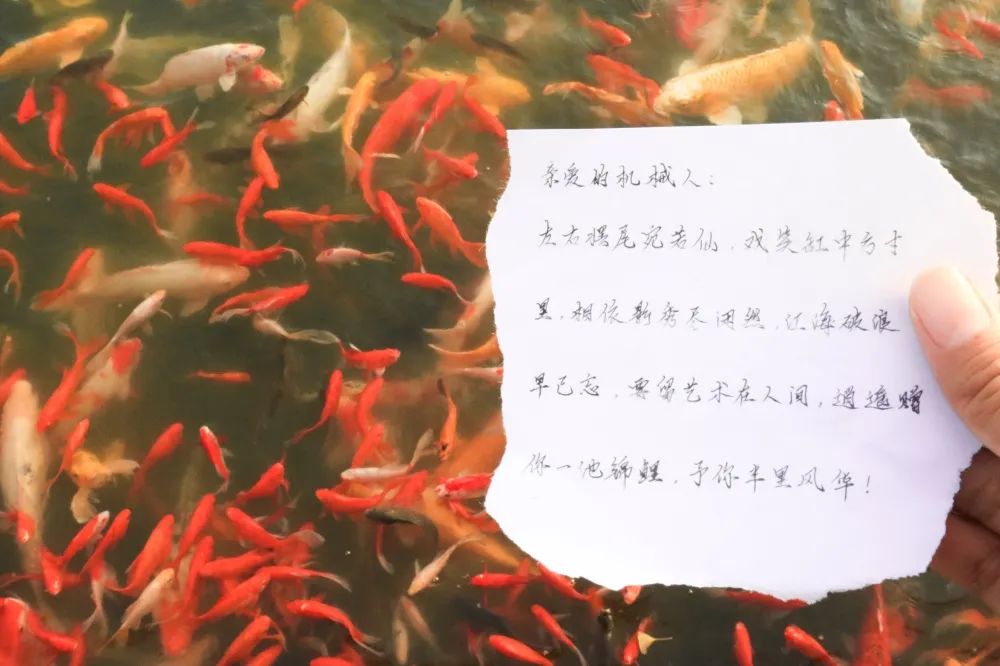 亲爱的机械人：
左右摆尾宛若仙，戏笑缸中方寸
里，相依斯秀尽闭然，江海破浪
早已忘，要留艺术在人间，逍遥赠
你一池锦鲤，予你半里风华！